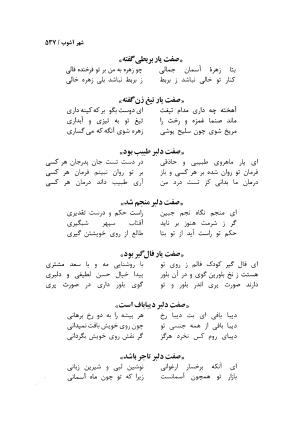 شهر آشوب / ۵۳۷
«صفت یار بربطی گفته»
بتا زهرهٔ آسمان جمالی چو زهره به من بر تو فرخنده فالی
کنار تو خالی نباشد ز بربط ز بربط نباشد بلی زهره خالی
«صفت یار تیغ زن گفته»
آهخته چه داری مدام تیغت ای دوست بگو که بر که کینه داری
ماند صنما غمزه و رخت را تیغ تو به تیزی و آبداری
مریخ شوی چون سلیح پوشی زهره شوی آنگه که می گساری
«صفت دلبر طبیب بود»
ای یار ماهروی طبیبی و حاذقی در دست تست جان پدرجان هر کسی
فرمان تو روان شده بر هر کس و باز بر تو روان نبینم فرمان هر کسی
درمان ما بدانی کز تست درد من آری طبیب داند درمان هر کسی
«صفت دلبر منجم شد»
ای منجم نگاه نجم جبین راست حکم و درست تقدیری
گر ز شرمت هنوز بر ناید آفتاب سپهر شبگیری
حکم تو راست آید از تو بتا طالع از روی خویشتن گیری
«صفت یار فال گیر بود»
ای فال گیر کودک فالم ز روی تو با روشنایی مه و با سعد مشتری
هستت ز نخ بلورین گوی و در آن بلور پیدا خیال حسن لطیفی و دلبری
دارند صورت پری اندر میان گوی گوی بلور داری در صورت پری
«صفت دلبر دیباباف است»
دیبا بافی ای بت دیبا رخ هر پیشه را به دو رخ برهانی
دیبا بافی از همه جنسی تو چون روی خویش بافت نمیدانی
دیبای روم کس نخرد هرگز گر نقش روی خویش بگردانی
«صفت دلبر تاجر باشد»
ای آنکه برخسار ارغوانی نوشین لبی و شیرین زبانی
بازار تو همچون آسمانست زیرا که تو چون ماه آسمانی